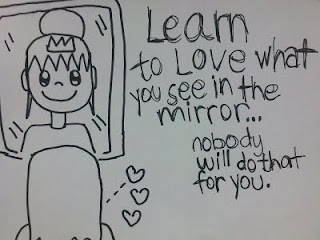 Learn
to Love what
you see in the
mirror...
nobody
will do that
for you.